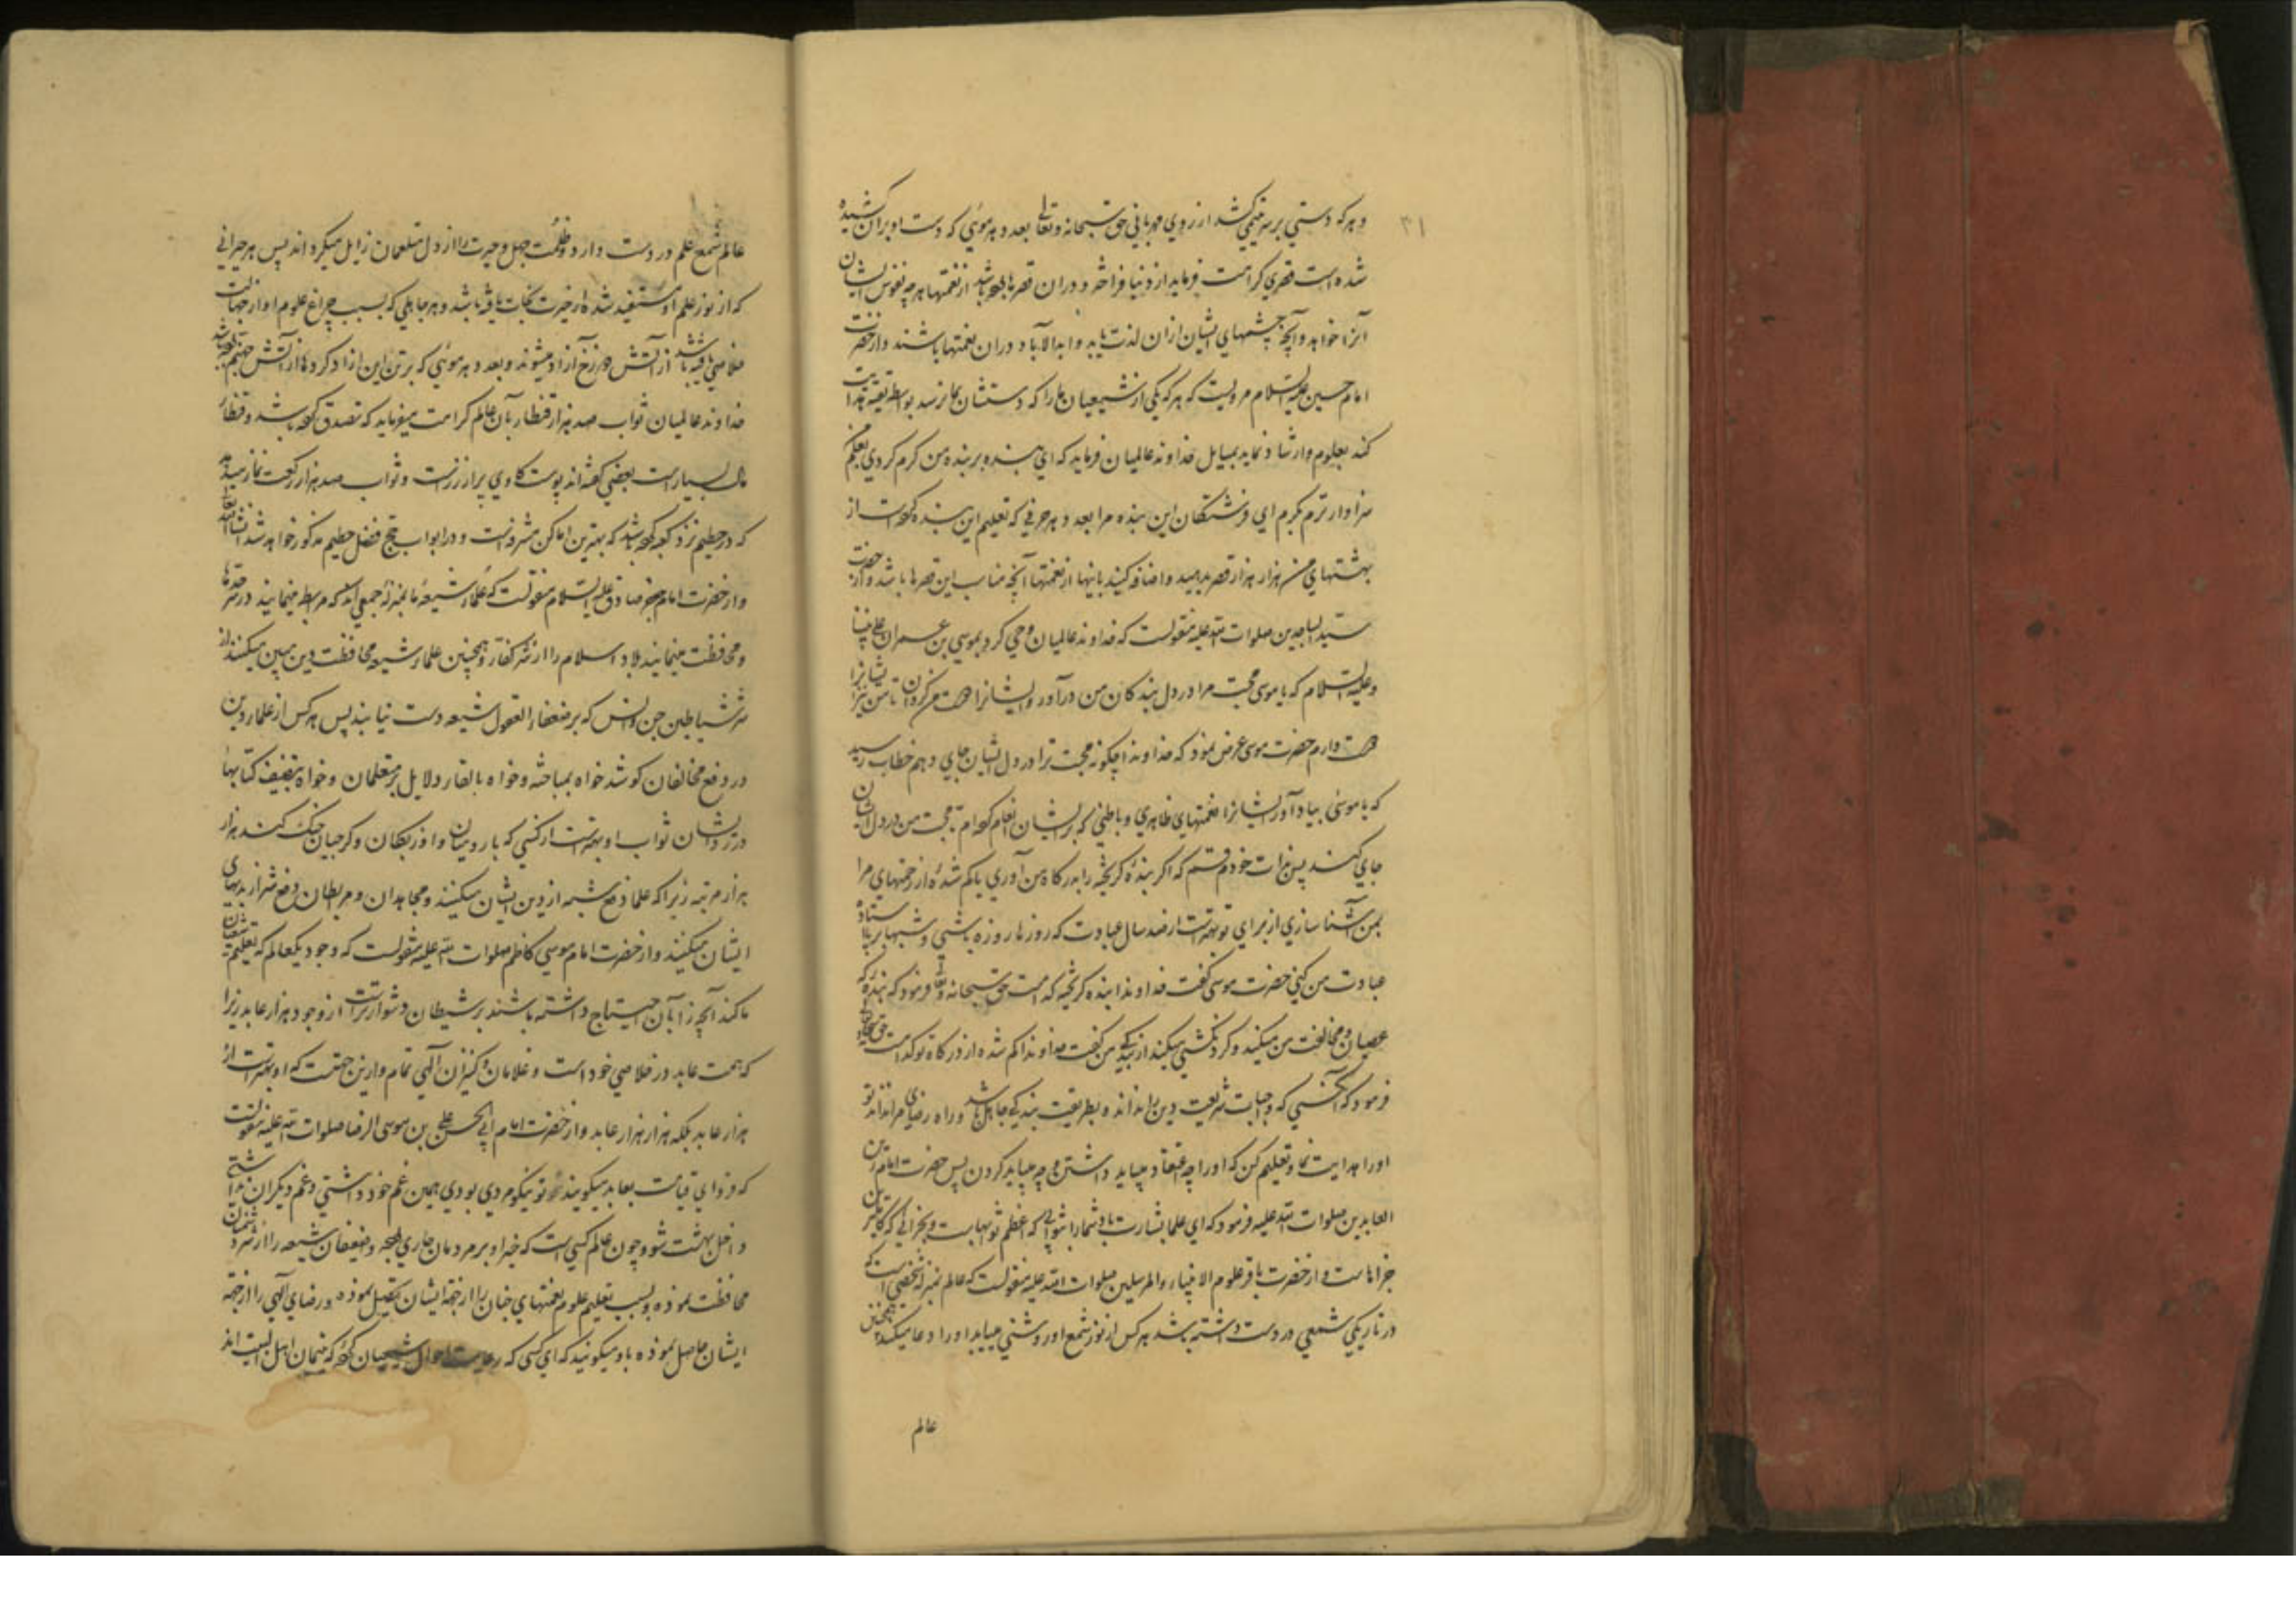 ۳۱
و هر که دستی بر سر یتیمی کشد از روی مهربانی حق سبحانه و تعالی بعدد هر موئی که دست او بران کشیده
شده است قصری کرامت فرماید از دنیا فراختر و دران قصرها بوده باشد از نعمتها هر چه نفوس ایشان
آنرا خواهد و آنچه چشمهای ایشان ازان لذت یابد و ابد الآباد دران نعمتها باشند و از حضرت
امام حسین علیه السلام مرویست که هر که یکی از شیعیان ما را که دستشان بما نرسد بواسطه تقیه هدایت
کند بعلوم و ارشاد نماید بمسایل خداوند عالمیان فرماید که ای بنده بر بنده من کرم کردی بعلم من
سزاوارترم بکرم ای فرشتکان این بنده مرا بعدد هر حرفی که تعلیم این بنده کرده است از
بهشتهای من هزار هزار قصر بدهید و اضافه کنید بانها از نعمتها آنچه مناسب این قصرها باشد و از حضرت
سید الساجدین صلوات الله علیه منقولست که خداوند عالمیان وحی کرد بموسی بن عمران علی نبینا
و علیه السلام که یا موسی محبت مرا در دل بندکان من درآور و ایشانرا دوست من کردان تا من نیز ایشانرا
دوست دارم حضرت موسی عرض نمود که خداوندا چکونه محبت ترا در دل ایشان جای دهم خطاب رسید
که یا موسی بیاد آور ایشانرا نعمتهای ظاهری و باطنی که بر ایشان انعام کرده‌ام تا محبت من در دل ایشان
جای کند پس بذات خودم قسم که اکر بنده کریخته را بدرکاه من آوری یا کم شده از رحمتهای مرا
بمن آشنا سازی از برای تو بهتر است از صد سال عبادت که روزها روزه باشی و شبها بر پا ستاده
عبادت من کنی حضرت موسی کفت خداوندا بنده کریخته کدامست حق سبحانه و تعالی فرمود که بنده که
عصیان و مخالفت من میکند و کردنکشی میکند از بندکی من کفت خداوندا کم شده از درکاه تو کدامست حق تعالی
فرمود که آنکسی که واجبات شریعت دین را نداند و بطریقت بندکی جاهل باشد و راه رضای مرا نداند تو
او را هدایت نما و تعلیم کن که او را چه اعتقاد میباید داشتن و چه میباید کردن پس حضرت امام زین
العابدین صلوات الله علیه فرمود که ای علما بشارت باد شما را بثوابی که اعظم ثوابهاست و بجزائی که کاملترین
جزاهاست و از حضرت باقر علوم الانبیاء والمرسلین صلوات الله علیه منقولست که عالم بمنزله شخصی است که
در تاریکی شمعی در دست داشته باشد هر کس از نور شمع او روشنی مییابد او را دعا میکند همچنین
عالم
عالم شمع علم در دست دارد و ظلمت جهل و حیرت را از دل متعلمان زایل میکرداند پس هر حیرانی
که از نور علم او مستفید شد و از حیرت نجات یافته باشد و هر جاهلی که بسبب چراغ علوم او از جهالت
خلاصی یافته باشد از آتش دوزخ آزاد میشوند و بعدد هر موئی که بر تن این آزاد کردها از آتش جهنم بوده باشد
خداوند عالمیان ثواب صد هزار قنطار بآن عالم کرامت میفرماید که تصدق کرده باشد و قنطار
مال بسیار است بعضی کفته‌اند پوست کاوی پر از زر است و ثواب صد هزار رکعت نماز میدهد
که در حطیم نزد کعبه کرده باشد که بهترین اماکن مشرفه است و در ابواب حج فضل حطیم مذکور خواهد شد انشاء الله تعالی
و از حضرت امام جعفر صادق علیه السلام منقولست که علماء شیعه ما بمنزله جمعی‌اند که مرابطه مینمایند در سرحدها
و محافظت مینمایند بلاد اسلام را از شر کفار و همچنین علماء شیعه محافظت دین مبین میکنند از
شر شیاطین جن و انس که بر ضعفاء العقول شیعه دست نیابند پس هر کس از علماء دین
در دفع مخالفان کوشد خواه بمباحثه و خواه بالقاء دلایل بر متعلمان و خواه بتصنیف کتابها
در رد ایشان ثواب او بهتر است از کسی که با رومیان و اوزبکان و کرجیان جنک کند هزار
هزار مرتبه زیرا که علما دفع شبهه از دین ایشان میکنند و مجاهدان و مرابطان دفع شر از بدنهای
ایشان میکنند و از حضرت امام موسی کاظم صلوات الله علیه منقولست که وجود یکعالم که تعلیم شیعیان
ما کند آنچه را بآن احتیاج داشته باشند بر شیطان دشوارتر است از وجود هزار عابد زیرا
که همت عابد در خلاصی خود است و غلامان و کنیزان الهی تمام و ازین جهتست که او بهتر است از
هزار عابد بلکه هزار هزار عابد و از حضرت امام ابی الحسن علی بن موسی الرضا صلوات الله علیه منقولست
که فردای قیامت بعابد میکویند که تو نیکو مردی بودی همین غم خود داشتی و غم دیکران نداشتی
داخل بهشت شو و چون عالم کسی است که خیر او بر مردمان جاری بوده و ضعیفان شیعه را از شر دشمنان
محافظت نموده و بسبب تعلیم علوم نعمتهای جنان را از جهة ایشان تحصیل نموده و رضای الهی را از جهة
ایشان حاصل نموده باو میکویند که ای کسی که رعایت احوال شیعیان کرده که یتیمان اهل البیت‌اند